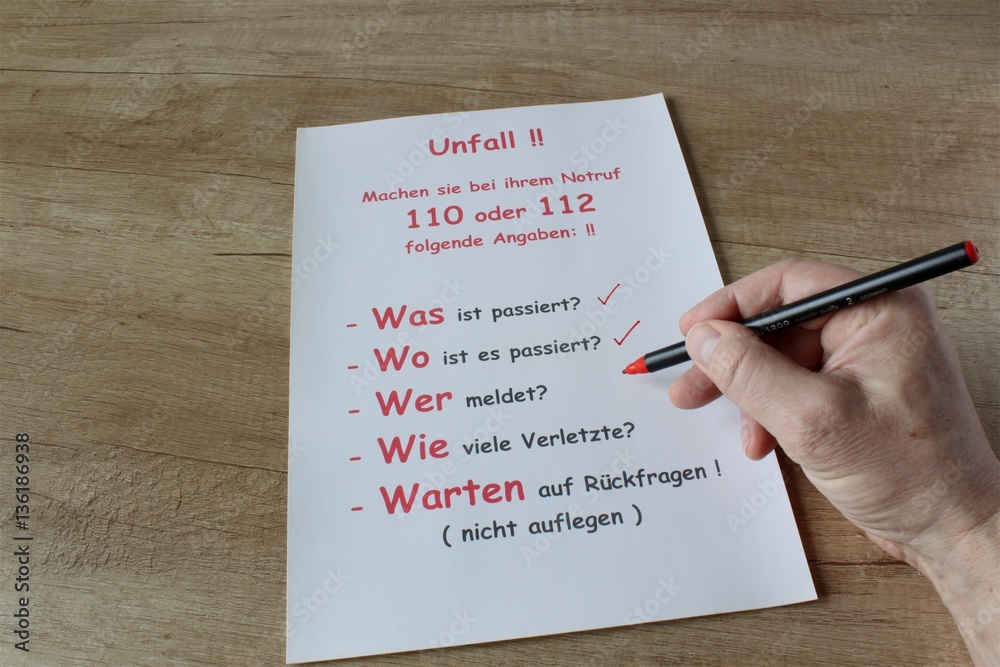 Unfall !!
Machen sie bei ihrem Notruf
110 oder 112
folgende Angaben: !!
- Was ist passiert?
- Wo ist es passiert?
- Wer meldet?
- Wie viele Verletzte?
- Warten auf Rückfragen !
( nicht auflegen )
Adobe Stock | #136186938